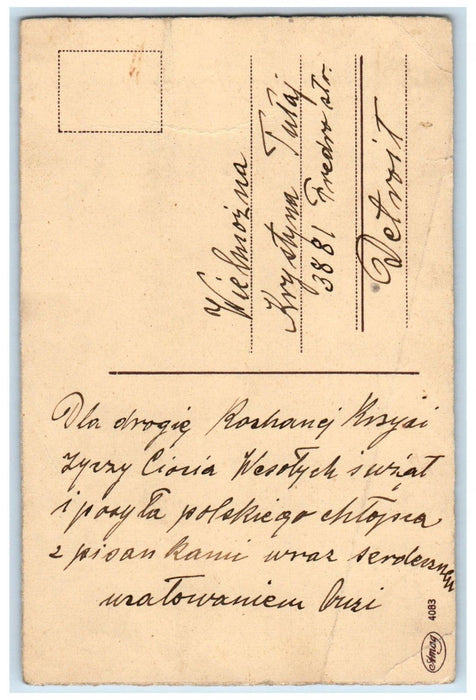 Wielmożna
Krystyna Tułaj
3881 Fredro str.
Detroit
Dla drogię Kochanej Krzysi
życzy Ciocia Wesołych świąt
i posyła polskiego chłopca
z pisankami wraz serdecznem
ucałowaniem Buzi
Amag
4083